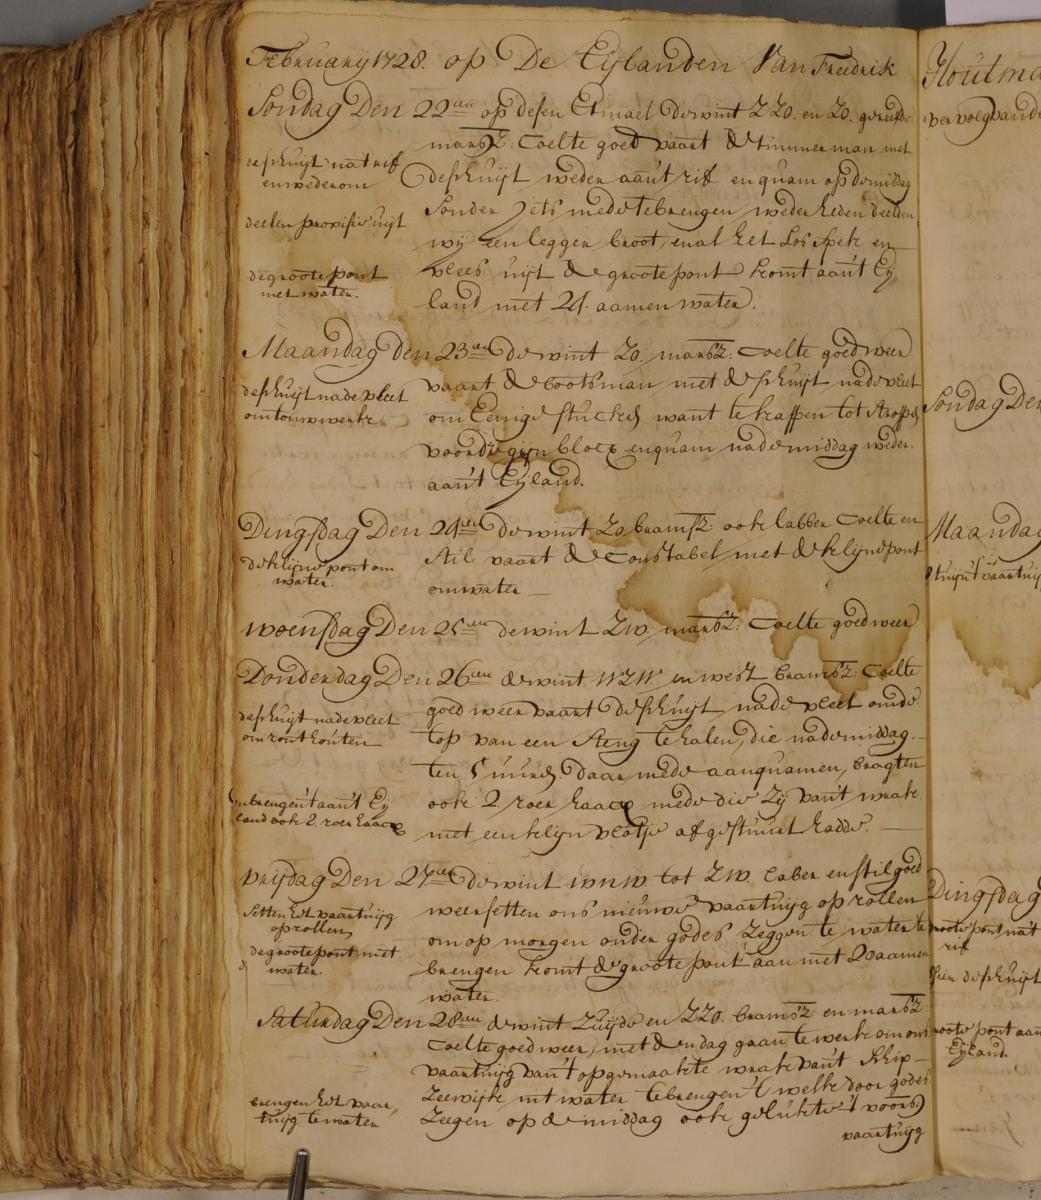 February 1728. op De Eylanden Van Fredrik
Sondag Den 22en op desen Etmael de wint ZZO. en ZO. gereefde
marsz: Coelte goed vaart de timmerman met
de schuijt na t rif
en wederom
de schuijt weder aan't rif en quam op de middag
sonder Jets mede te brengen weder heden deelden
deelen provisie uijt
wij een legger broot, en al het Los spek en
vlees uijt de groote pont komt aan't Ey
de groote pont
met water.
land met 24. aamen water.
Maandag Den 23en de wint Zo. marsz: Coelte goed weer
de schuijt na de vleet
om touwwerk
vaart de bootsman met de schuijt na de vleet
om Eenige stucken want te kappen tot stropp
voor de gijn blocx en quam na de middag weder
aan't Eyland.
Dingsdag Den 24en de wint Zo bramsz: ook labber Coelte en
de klijne pont om
water.
stil vaart de Constabel met de klijne pont
om water
Woensdag Den 25en de wint ZW. marsz: Coelte goed weer
Donderdag Den 26en de wint WZW. en west bramsz: Coelte
goed weer vaart de schuijt na de vleet om de
de schuijt na de vleet
om ront houten
top van een steng te halen, die na de middag
ten 5 uuren daar mede aanquamen, bragten
brengen't aan't Ey
land ook 2. roer haacx
ook 2 roer haacx mede die Zij van't wrak
met een klijn vlotje afgestuurt hadde.
Vrijdag Den 27en de wint WNW. tot ZW. laber en stil goed
setten het vaartuijg
op rollen
weer setten ons nieuwe vaartuijg op rollen
om op morgen onder godes Zeggen te water te
de groote pont met
water.
brengen komt de groote pont aan met 20 aamen
water.
Saturdag Den 28en de wint Zuijde en ZZO. bramsz: en marsz:
Coelte goed weer, met den dag gaan te werk om ons
vaartuijg van't opgemaakte wrak van't Schip
brengen het vaar
tuijg te water
Zeewijk int water te brengen't welk door godes
Zeegen op de middag ook gelukte 't voors:
vaartuijg
Houtma
vervolg vand
Sondag Den
Maandag
Dingsdag
groote pont na't
rif
de schuijt
groote pont aan
Eyland.